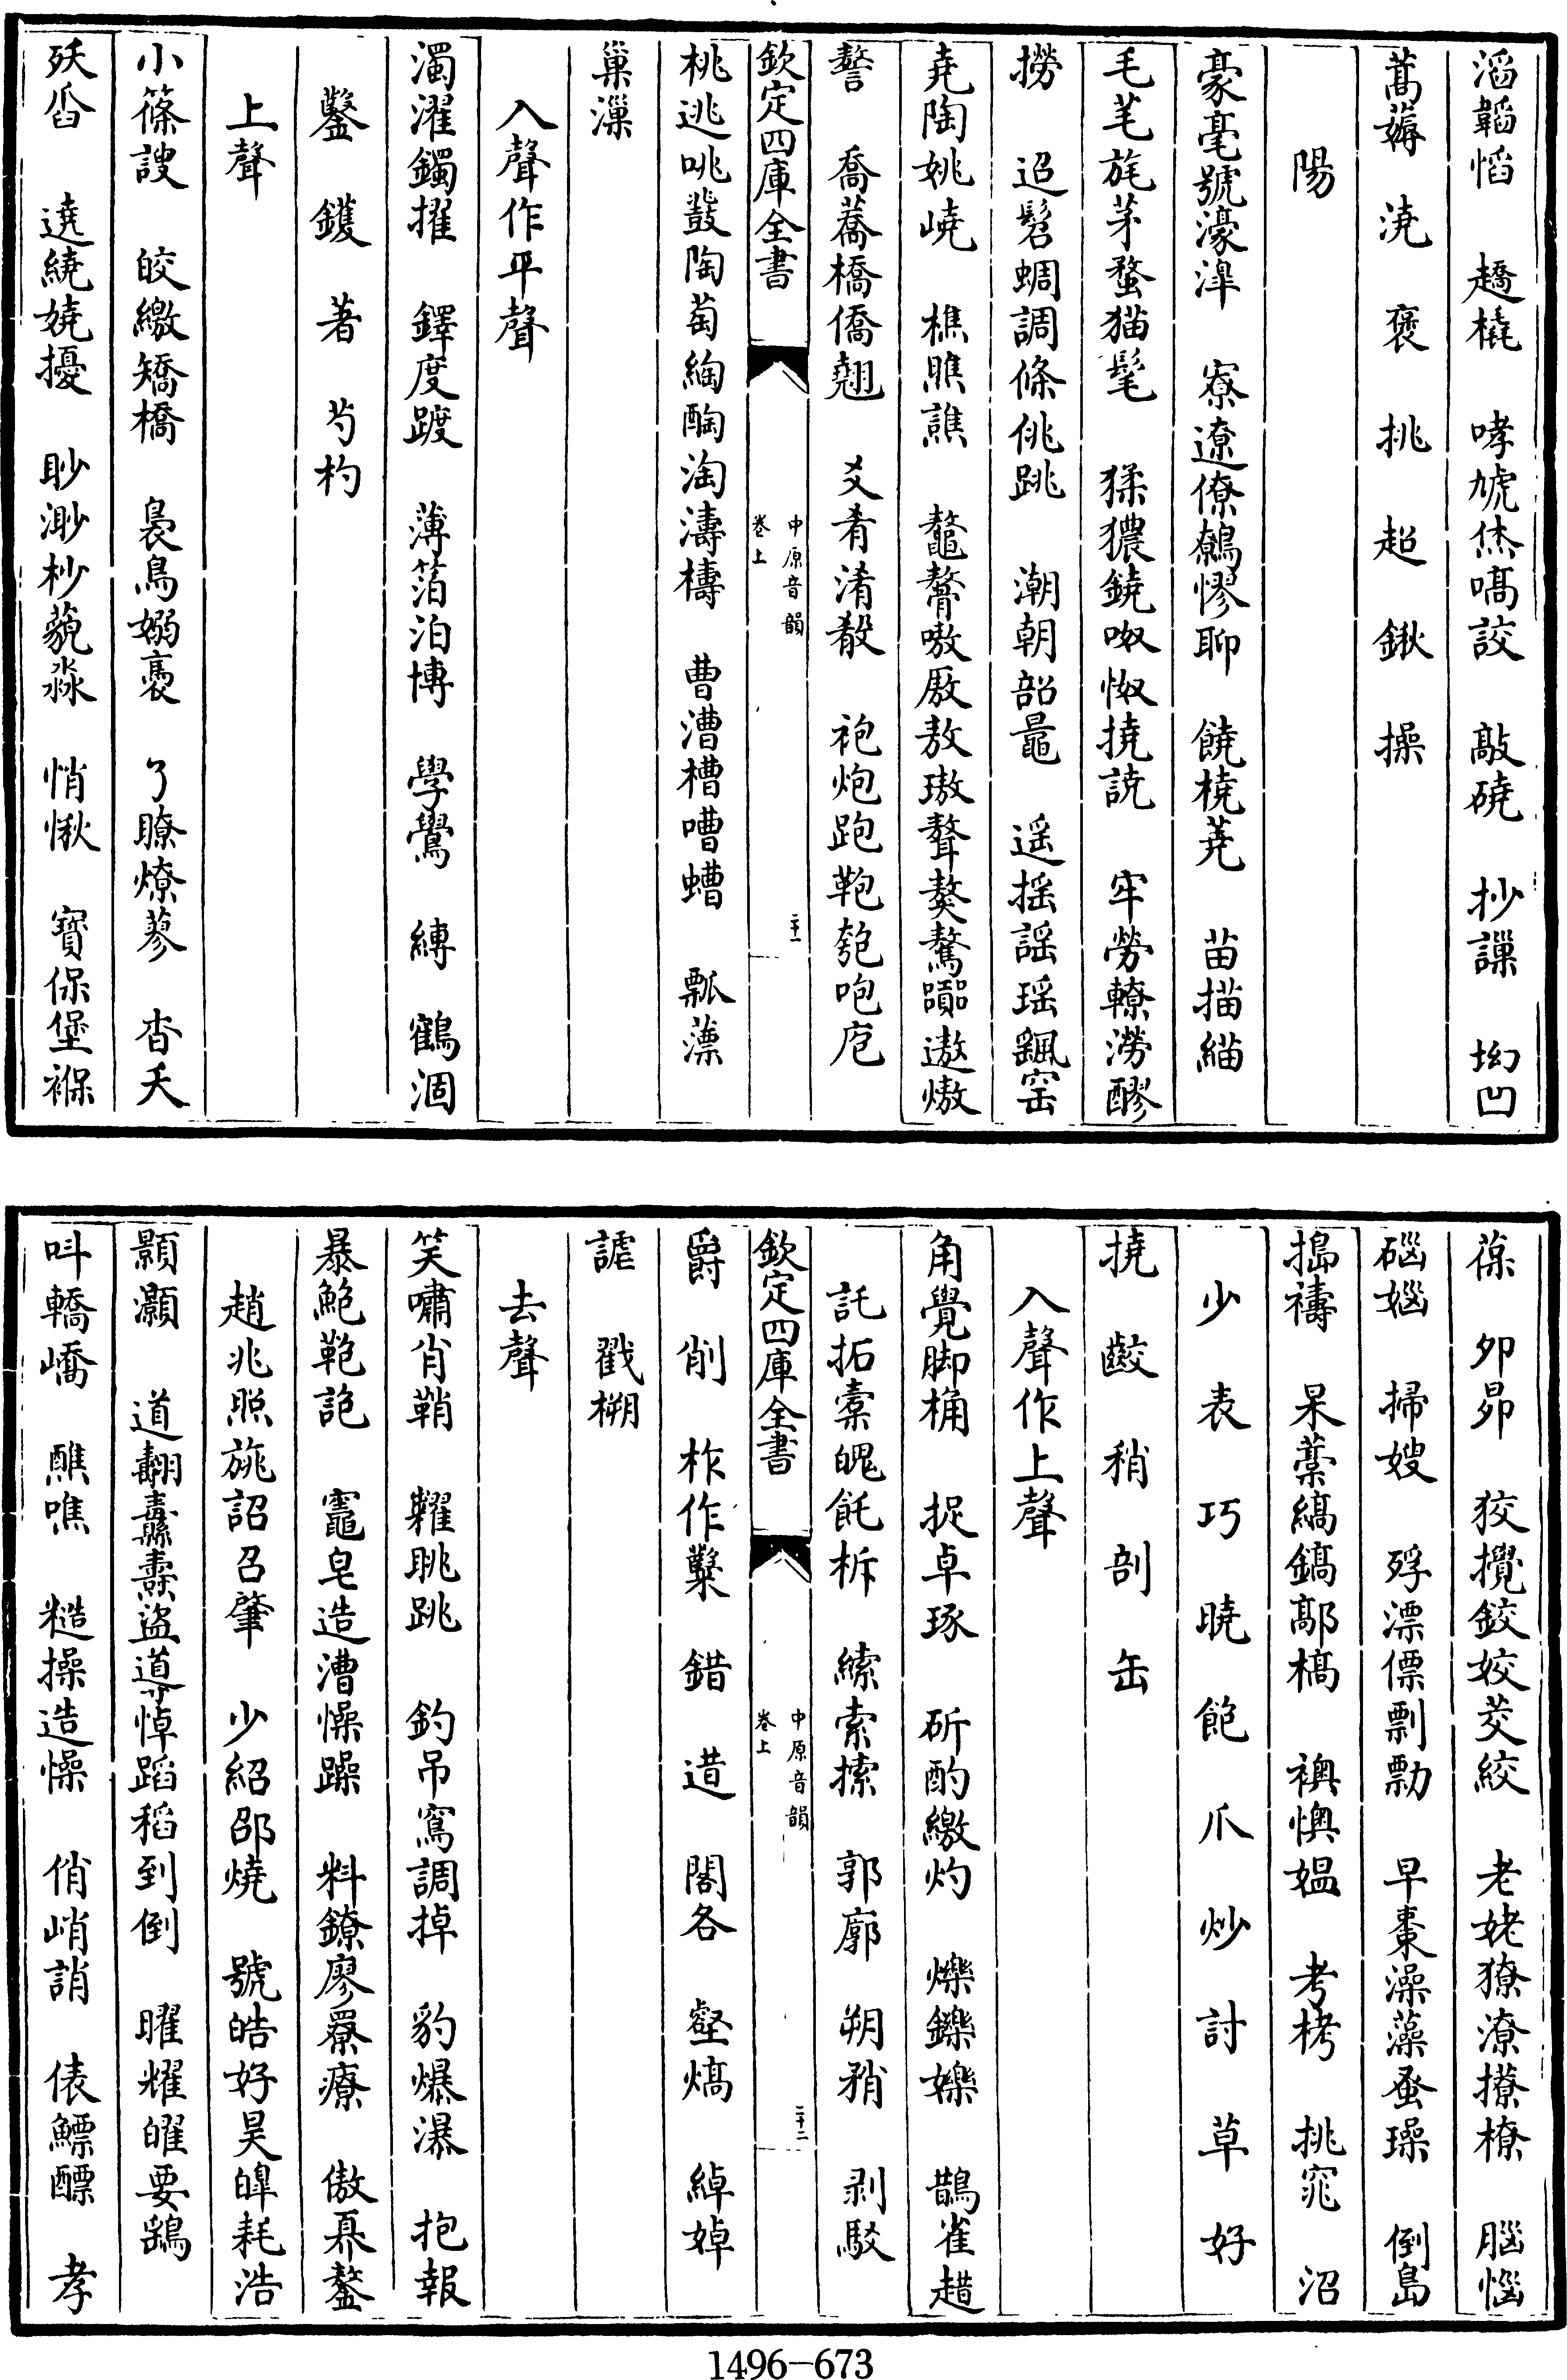 滔韜慆　趫橇　哮虓烋嗃詨　敲磽　抄譟　坳凹
蒿薅　澆　褒　挑　超　鍬　操
陽
豪毫號濠滜　寮遼僚鷯憀聊　饒橈蕘　苗描緢
毛芼旄茅蝥猫髦　猱獶鐃呶怓撓譊　牢勞轑澇醪
撈　迢髫蜩調條佻跳　潮朝韶鼂　遥揺謡瑶颻窑
堯陶姚嶢　樵瞧譙　鼇鷔嗷厫敖璈聱獒驁嚻遨熬
謷　喬蕎橋僑翹　爻肴淆殽　袍炮跑鞄匏咆庖
欽定四庫全書　中原音韻　卷上　二十一
桃逃咷鼗陶萄綯醄淘濤檮　曹漕槽嘈螬　瓢薸
巢漅
入聲作平聲
濁濯鐲擢　鐸度踱　薄箔泊博　學鷽　縛　鶴涸
鑿　鑊　著　芍杓
上聲
小篠謏　皎繳矯撟　裊鳥嫋褭　了瞭燎蓼　杳夭
殀舀　遶繞嬈擾　眇渺杪藐淼　悄愀　寳保堡褓
葆　夘昴　狡攪鉸姣茭絞　老姥獠潦撩橑　腦惱
碯㛴　掃嫂　殍漂僄剽勡　早棗澡藻蚤璪　倒島
搗禱　杲藁縞鎬鄗槁　襖懊媪　考栲　挑窕　沼
少　表　巧　曉　飽　爪　炒　討　草　好
撓　齩　稍　剖　缶
入聲作上聲
角覺脚桷　捉卓琢　斫酌繳灼　爍鑠嬳　鵲雀趞
託拓橐魄飥柝　縤索摗　郭廓　朔矟　剥駁
欽定四庫全書　中原音韻　卷上　二十二
爵　削　柞作糳　錯　逪　閣各　壑熇　綽婥
謔　戳槊
去聲
笑嘯肖鞘　糶眺跳　釣吊窵調掉　豹爆瀑　抱報
暴鮑鞄䛌　竈皂造漕懆躁　料鐐廖尞療　傲奡鏊
趙兆照旐詔召肇　少紹邵燒　號皓好昊皡耗浩
顥灝　道翿纛燾盜導悼蹈稻到倒　曜耀曜要鷂
叫轎嶠　醮噍　糙操造懆　俏峭誚　俵鰾醥　孝
1496—673